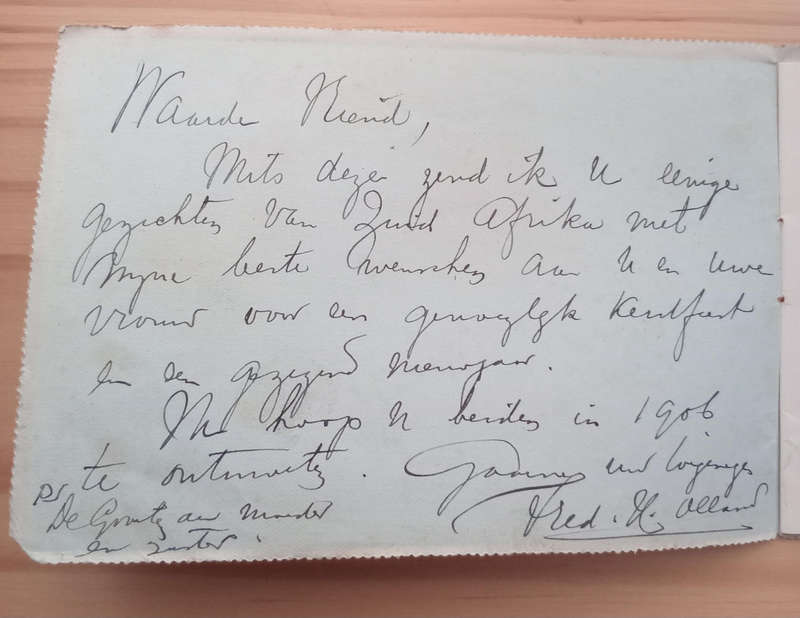 Waarde Vriend,
Mits deze zend ik U eenige
gezichten van Zuid Afrika met
mijne beste wenschen aan U en uwe
vrouw voor een genoeglijk Kerstfeest
en een gezegend nieuwjaar.
Ik hoop U beiden in 1906
te ontmoeten.
Fred. H. Olland
PS
De Groeten aan moeder
en zuster.